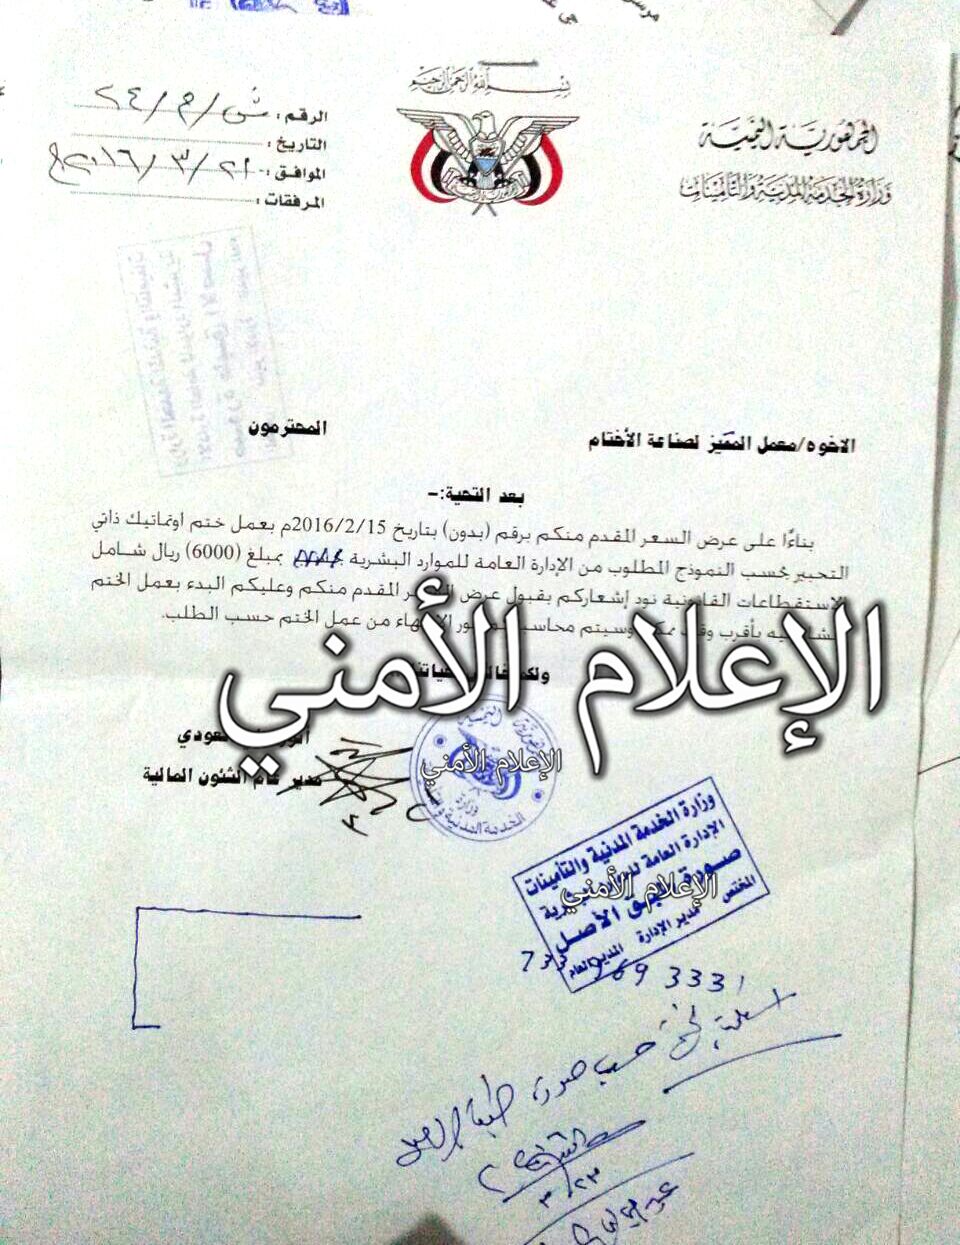 بسم الله الرحمن الرحيم
الجمهورية اليمنية
وزارة الخدمة المدنية والتأمينات
الرقم: ش/م/٢٤
التاريخ:
الموافق: ٢١/٣/٢٠١٦م
المرفقات:
الاخوه/معمل المتميز لصناعة الأختام المحترمون
بعد التحية:-
بناءًا على عرض السعر المقدم منكم برقم (بدون) بتاريخ 2016/2/15م بعمل ختم اوتماتيك ذاتي
التحبير بحسب النموذج المطلوب من الإدارة العامة للموارد البشرية بمبلغ (6000) ريال شامل
الاستقطاعات القانونية نود إشعاركم بقبول عرض المقدم منكم وعليكم البدء بعمل الختم
بأقرب من عمل الختم حسب الطلب.
الإعلام الأمني
مدير عام الشئون المالية
الإعلام الأمني
وزارة الخدمة المدنية والتأمينات
الإدارة العامة
صورة طبق الأصل
الإعلام الأمني
المختص مدير الإدارة المدير العام
حسب صورة طبق الأصل
٢٣/٣